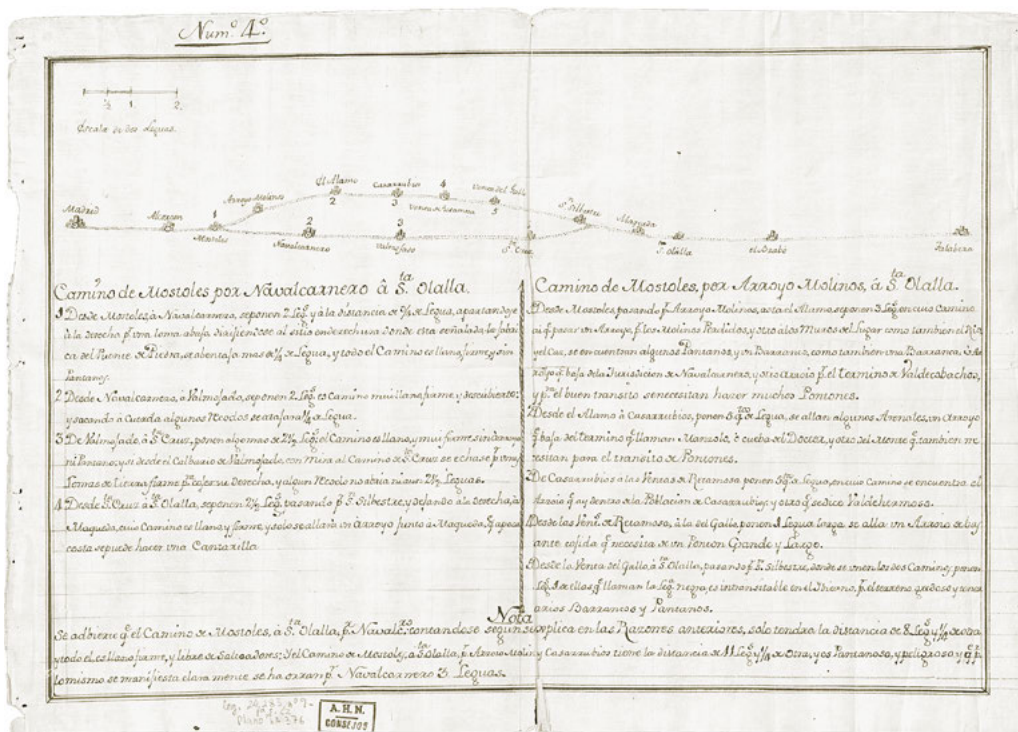 Num.º 4.º
½ 1. 2.
Escala de dos Leguas.
Madrid
Alcorcon
1
Mostoles
Arroyo Molinos
El Alamo
2
Casarrubios
3
4
Ventas de Retamosa
Venta del Gallo
5
2
Navalcarnero
3
Valmojado
S.ta Cruz
S.n Silbestre
Maqueda
S.ta Olalla
el Brabo
Talabera
Camino de Mostoles por Navalcarnero â S.ta Olalla.
1 Desde Mostoles, à Navalcarnero, seponen 2 Leg.s y à la distancia de ¾ de Legua, apartandose
à la derecha p.r una loma abaja dirijiendose al sitio enderechura donde esta señalada la fabri
ca del Puente de Piedra, se abentaja mas de ¼ de Legua, y todo el Camino es llano firme y sin
Pantanos.
2 Desde Navalcarnero, à Valmojado, seponen 2 Leg.s es Camino mui llano firme y descubierto:
y sacando à Cuerda algunos Recodos se atajara ¼ de Legua.
3 De Valmojado, à S.ta Cruz, ponen algo mas de 2½ Leg.s el Camino es llano, y mui firme, sin
ni Pantano; y si desde el Calbario de Valmojado, con Mira al Camino de S.ta Cruz se echase p.r unas
Lomas de tierra firme p.a cojer via derecha, y algun Recodo no abria ni aun 2½ Leguas.
4 Desde S.ta Cruz à S.ta Olalla, seponen 2½ Leg.s pasando p.r S.n Silbestre, y dejando à la derecha, à
Maqueda, cuio Camino es llano y firme, y solo se allara un Arroyo junto à Maqueda, q.e à poca
costa se puede hacer una Cantarilla
Camino de Mostoles, por Arroyo Molinos, á S.ta Olalla.
1 Desde Mostoles, pasando p.r Arroyo Molinos, asta el Alamo, seponen 3 Leg.s en cuio Camino
ai q.e pasar un Arroyo, p.r los Molinos Perdidos, y otro à los Muros del Lugar como tambien el Rio
se encuentran algunos Pantanos, y un Barranco, como tambien una Barranca, ô Ar
royo q.e baja dela Jurisdicion de Navalcarnero, y otro Arroio p.r el termino de Valdecobachos,
y p.a el buen transito se necesitan hacer muchos Pontones.
2 Desde el Alamo à Casarrubios, ponen 5 q.tos de Legua, se allan algunos Arenales, un Arroyo
q.e baja del termino q.e llaman Marzolo, ò cueba del Doctor, y otro del Monte q.e tambien ne
cesitan para el transito de Pontones.
3 De Casarrubios à las Ventas de Retamosa ponen de Legua, en cuio Camino se encuentra el
Arroio q.e ay dentro la Poblacion de Casarrubios, y otro q.e se dice Valdehermoso.
4 Desde las Vent.s de Retamosa, à la del Gallo, ponen 1 Legua larga, se alla un Arroyo de bas
tante cojida q.e necesita de un Ponton Grande y Largo.
5 Desde la Venta del Gallo, à S.ta Olalla, pasando p.r S.n Silbestre, donde se unen los dos Caminos, ponen
Leg.s de ellas q.e llaman la Leg.a negra, es intransitable en el Ibierno, p.r el terreno gredoso y tener
arios Barrancos y Pantanos.
Nota
Se adbierte q.e el Camino de Mostoles, à S.ta Olalla, p.r Navalc.ro contandose segun se explica en las Razones anteriores, solo tendra la distancia de 8 Leg.s y ½ de otra
y todo el, es llano firme, y libre de Salteadores; Y el Camino de Mostoles, à S.ta Olalla, p.r Arroio Molin.s y Casarrubios tiene la distancia de 11 Leg.s y ½ de Otra, y es Pantanoso, y peligroso y q.e p.r
lo mismo se manifiesta claramente se ahorran p.r Navalcarnero 3 Leguas.
A. H. N.
CONSEJOS